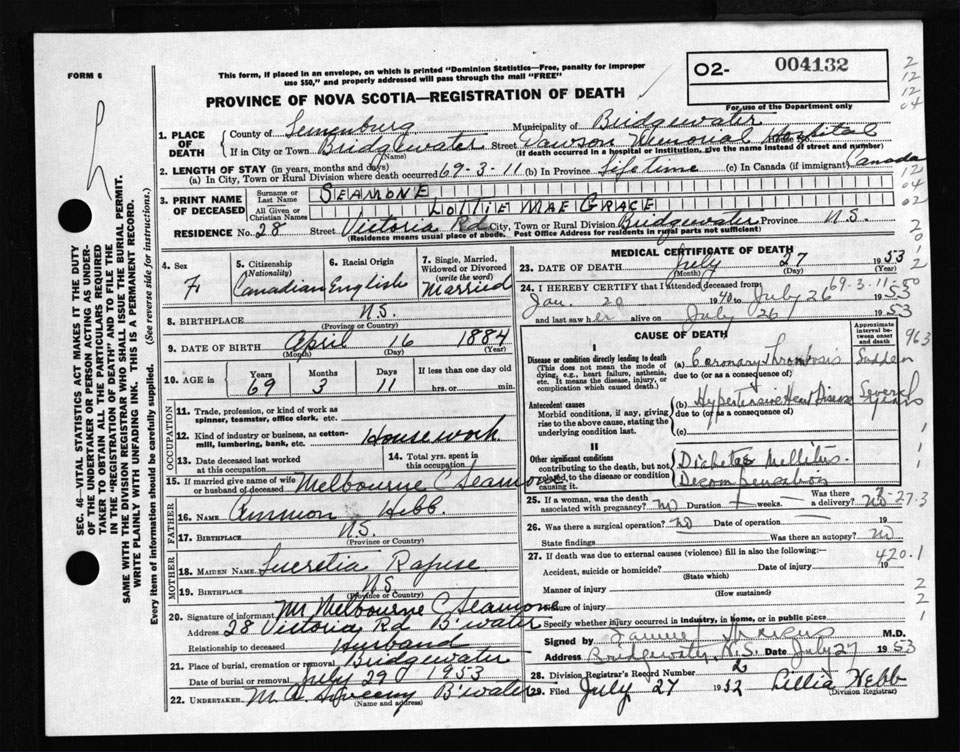 FORM 6
This form, if placed in an envelope, on which is printed "Dominion Statistics—Free, penalty for improper
use $50," and properly addressed will pass through the mail "FREE"
O2- 004132
For use of the Department only
PROVINCE OF NOVA SCOTIA—REGISTRATION OF DEATH
2
12
12
04
12
04
02
2
0
1
2
SEC. 46—VITAL STATISTICS ACT MAKES IT THE DUTY
OF THE UNDERTAKER OR PERSON ACTING AS UNDER-
TAKER TO OBTAIN ALL THE PARTICULARS REQUIRED
IN THE "REGISTRATION OF DEATH" AND TO FILE THE
SAME WITH THE DIVISION REGISTRAR WHO SHALL ISSUE THE BURIAL PERMIT.
WRITE PLAINLY WITH UNFADING INK. THIS IS A PERMANENT RECORD.
Every item of information should be carefully supplied. (See reverse side for instructions.)
1. PLACE OF DEATH County of Lunenburg Municipality of Bridgewater
If in City or Town Bridgewater Street Dawson Memorial Hospital
(Name) (If death occurred in a hospital or institution, give the name instead of street and number)
2. LENGTH OF STAY (in years, months and days)
(a) In City, Town or Rural Division where death occurred 69-3-11 (b) In Province Lifetime (c) In Canada (if immigrant) Canada
3. PRINT NAME OF DECEASED Surname or Last Name SEAMONE
All Given or Christian Names LOTTIE MAE GRACE
RESIDENCE No. 28 Street Victoria Rd City, Town or Rural Division Bridgewater Province N.S.
(Residence means usual place of abode. Post Office Address for residents of rural parts not sufficient)
4. Sex F.
5. Citizenship (Nationality) Canadian
6. Racial Origin English
7. Single, Married, Widowed or Divorced (write the word) Married
8. BIRTHPLACE N.S.
(Province or Country)
9. DATE OF BIRTH April 16 1884
(Month) (Day) (Year)
10. AGE in Years 69 Months 3 Days 11 If less than one day old hrs. or min.
OCCUPATION
11. Trade, profession, or kind of work as spinner, teamster, office clerk, etc.
12. Kind of industry or business, as cotton-mill, lumbering, bank, etc. Housework
13. Date deceased last worked at this occupation
14. Total yrs. spent in this occupation
15. If married give name of wife or husband of deceased Melbourne C Seamone
FATHER
16. Name Ammon Hebb
17. Birthplace N.S.
MOTHER
18. MAIDEN NAME Lucretia Rafuse
19. BIRTHPLACE N.S.
(Province or Country)
20. Signature of informant Mr Melbourne C Seamone
Address 28 Victoria Rd B'water
Relationship to deceased Husband
21. Place of burial, cremation or removal Bridgewater
Date of burial or removal July 29 1953
22. UNDERTAKER M. A. Sweeny B'water
(Name and address)
MEDICAL CERTIFICATE OF DEATH
23. DATE OF DEATH July 27 1953
(Month) (Day) (Year)
69-3-11-50
24. I HEREBY CERTIFY that I attended deceased from
Jan. 20 1940 to July 26 1953
and last saw her alive on July 26 1953
CAUSE OF DEATH
Approximate interval between onset and death
963
I
Disease or condition directly leading to death
(This does not mean the mode of dying, e.g., heart failure, asthenia, etc. It means the disease, injury, or complication which caused death.)
(a) Coronary Thrombosis Sudden
due to (or as a consequence of)
Antecedent causes
Morbid conditions, if any, giving rise to the above cause, stating the underlying condition last.
(b) Hypertensive Heart Disease Several years
due to (or as a consequence of)
(c)
II
Other significant conditions
contributing to the death, but not related to the disease or condition
Diabetes Mellitus.
Decompensation
25. If a woman, was the death associated with pregnancy? no Duration weeks. Was there a delivery? no
27.3
26. Was there a surgical operation? no Date of operation 19
State findings Was there an autopsy? no
27. If death was due to external causes (violence) fill in also the following: 420.1
Accident, suicide or homicide? Date of injury 19
(State which)
Manner of injury
(How sustained)
Nature of injury
Specify whether injury occurred in industry, in home, or in public place
Signed by M.D.
Address Bridgewater, N.S. Date July 27 1953
28. Division Registrar's Record Number 2
29. Filed July 27 1952 Lillia Hebb
(Division Registrar)